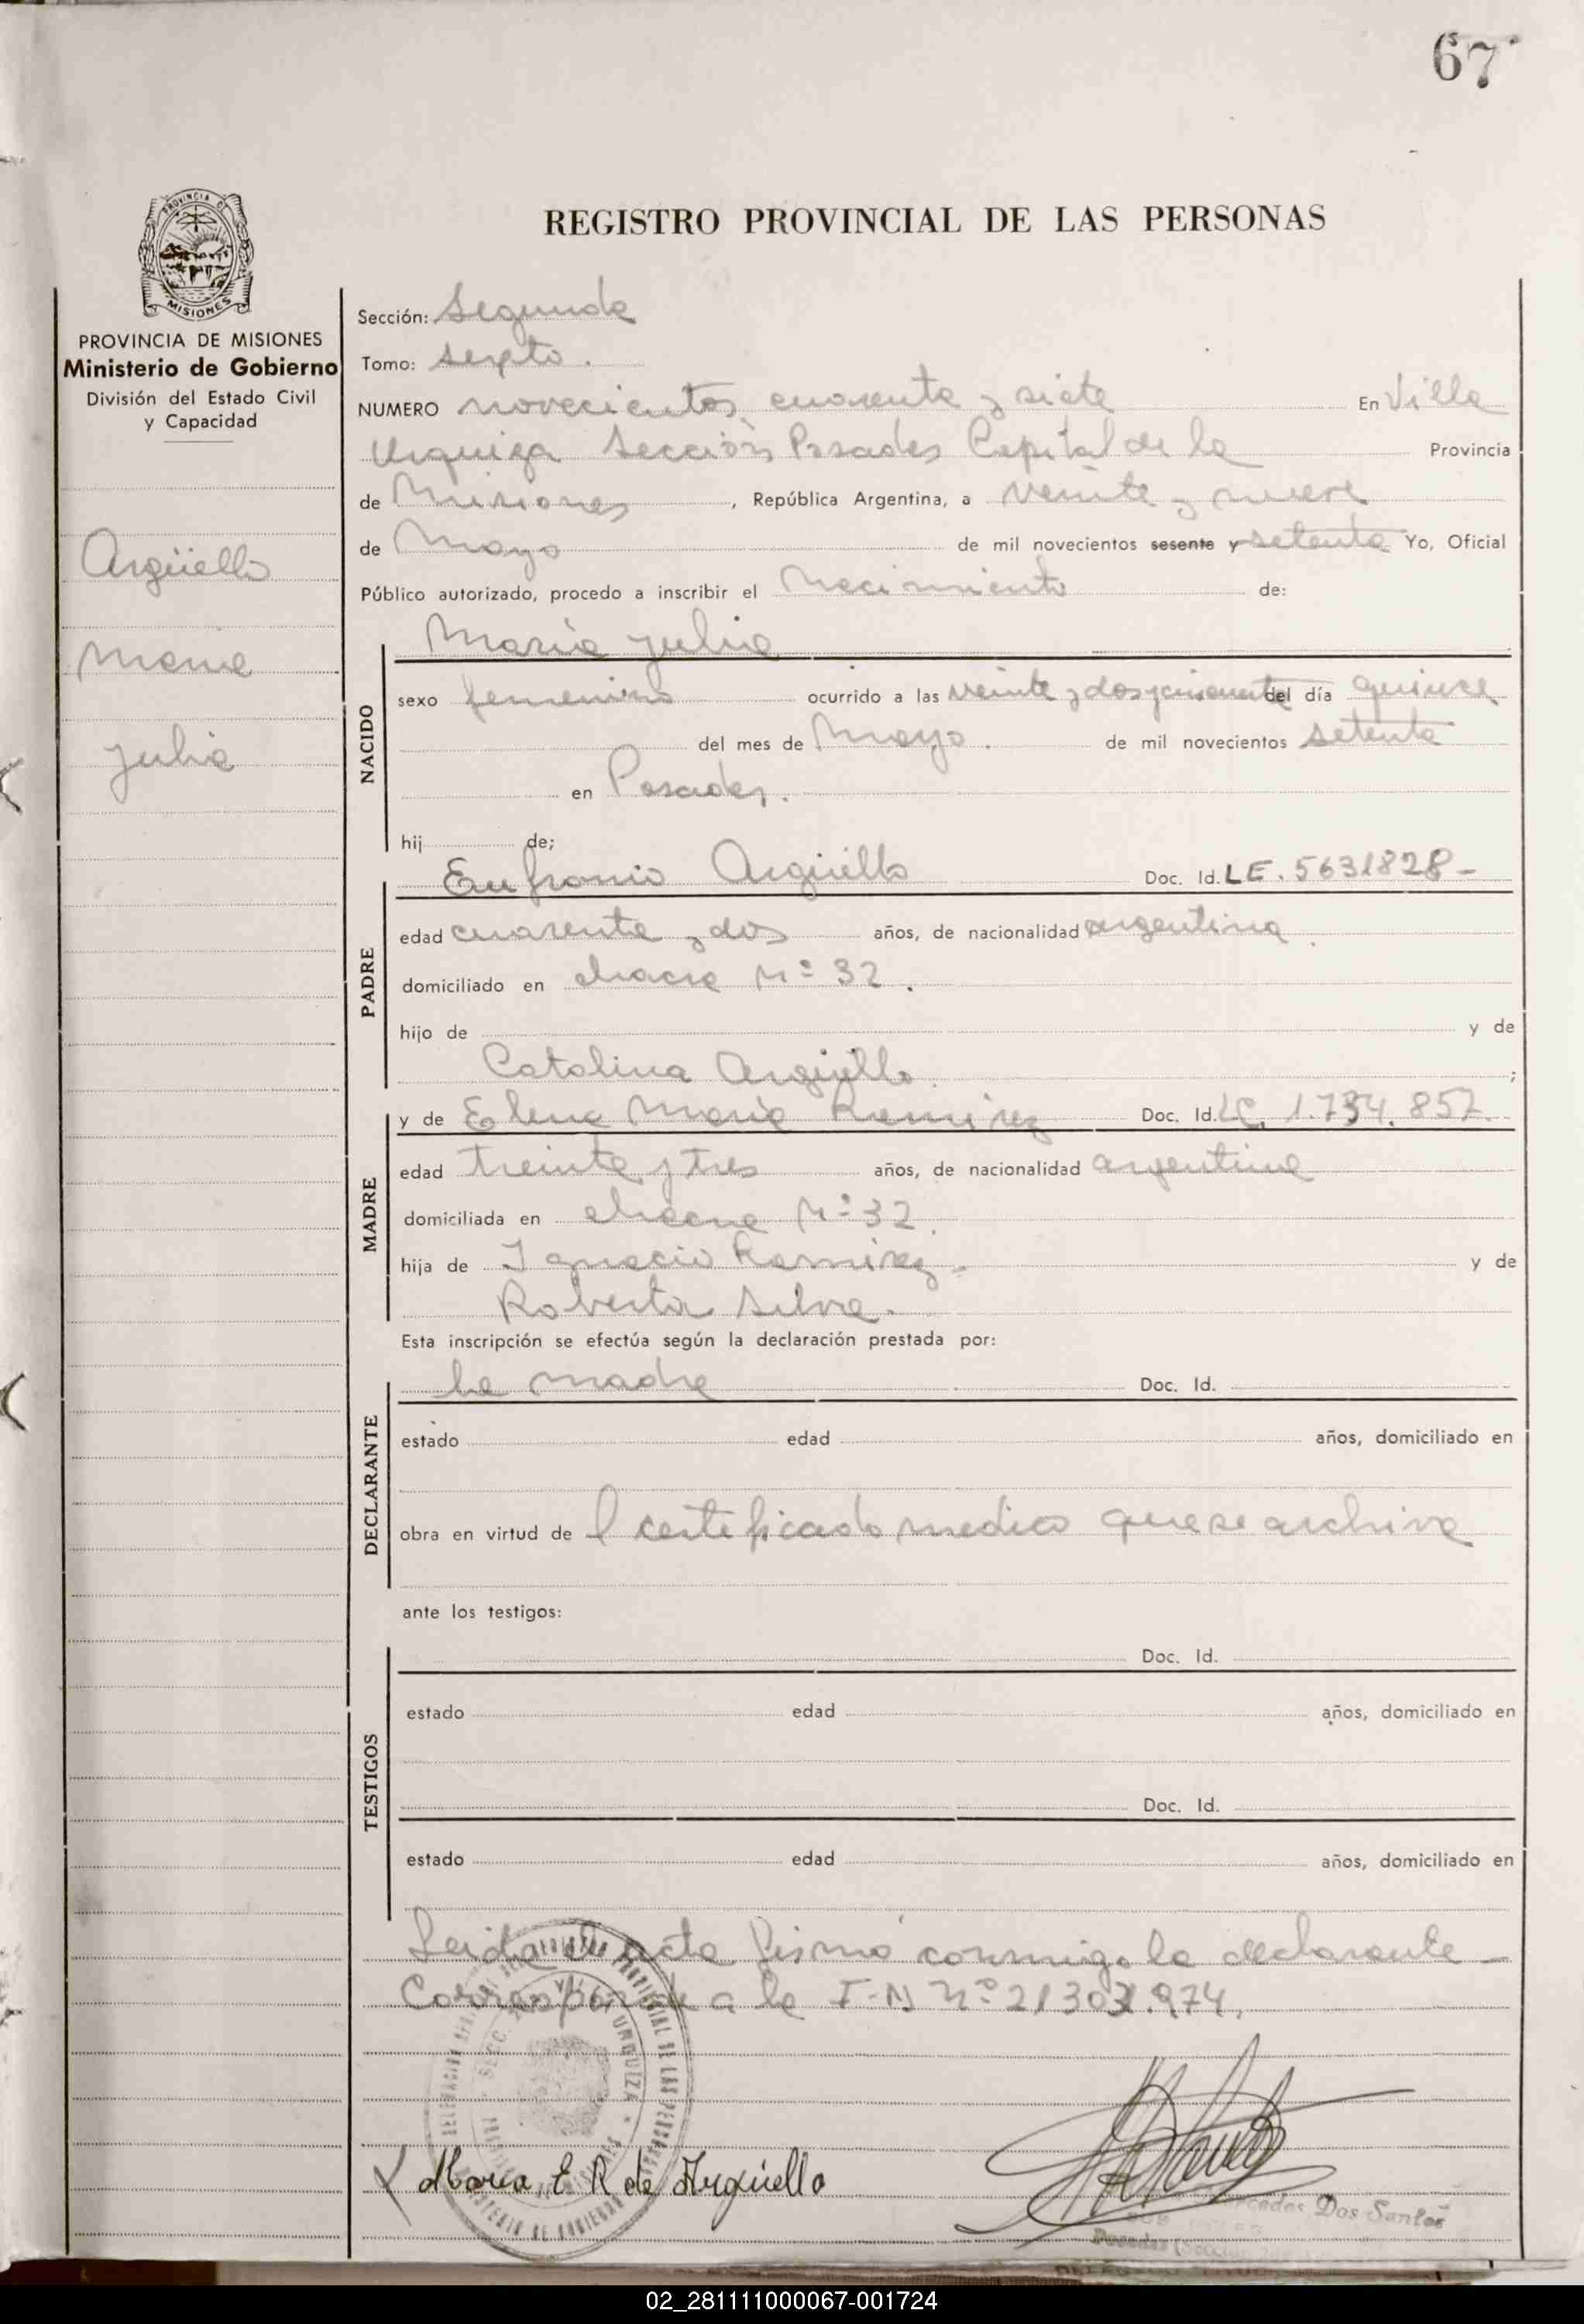 67
REGISTRO PROVINCIAL DE LAS PERSONAS
PROVINCIA DE
MISIONES
PROVINCIA DE MISIONES
Ministerio de Gobierno
División del Estado Civil
y Capacidad
Argüello
Maria
Julia
Sección: Segunda
Tomo: sexto.
NUMERO novecientos cuarenta y siete En Villa
Urquiza Sección Posadas Capital de la Provincia
de Misiones, República Argentina, a veinte y nueve
de Mayo de mil novecientos sesenta y setenta Yo, Oficial
Público autorizado, procedo a inscribir el Nacimiento de:
María Julia
NACIDO
sexo femenino ocurrido a las veinte y dos y cincuenta del día quince
del mes de Mayo. de mil novecientos setenta
en Posadas.
hij de;
Eufronio Argüello Doc. Id. LE. 5631828-
PADRE
edad cuarenta y dos años, de nacionalidad argentina.
domiciliado en chacra Nº 32.
hijo de y de
Catalina Argüello. ;
y de Elena María Ramirez Doc. Id. LC. 1.734.857.
MADRE
edad treinta y tres años, de nacionalidad argentina
domiciliada en chacra Nº 32.
hija de Ignacio Ramirez. y de
Roberta Silva.
Esta inscripción se efectúa según la declaración prestada por:
la madre Doc. Id.
DECLARANTE
estado edad años, domiciliado en
obra en virtud de l certificado medico que se archiva
ante los testigos:
Doc. Id.
TESTIGOS
estado edad años, domiciliado en
Doc. Id.
estado edad años, domiciliado en
Leida el acta firmó conmigo la declarante-
Corresponde a la I-N Nº 21303.974.
María, E R de Argüello
Dos Santos
Posadas
02_281111000067-001724